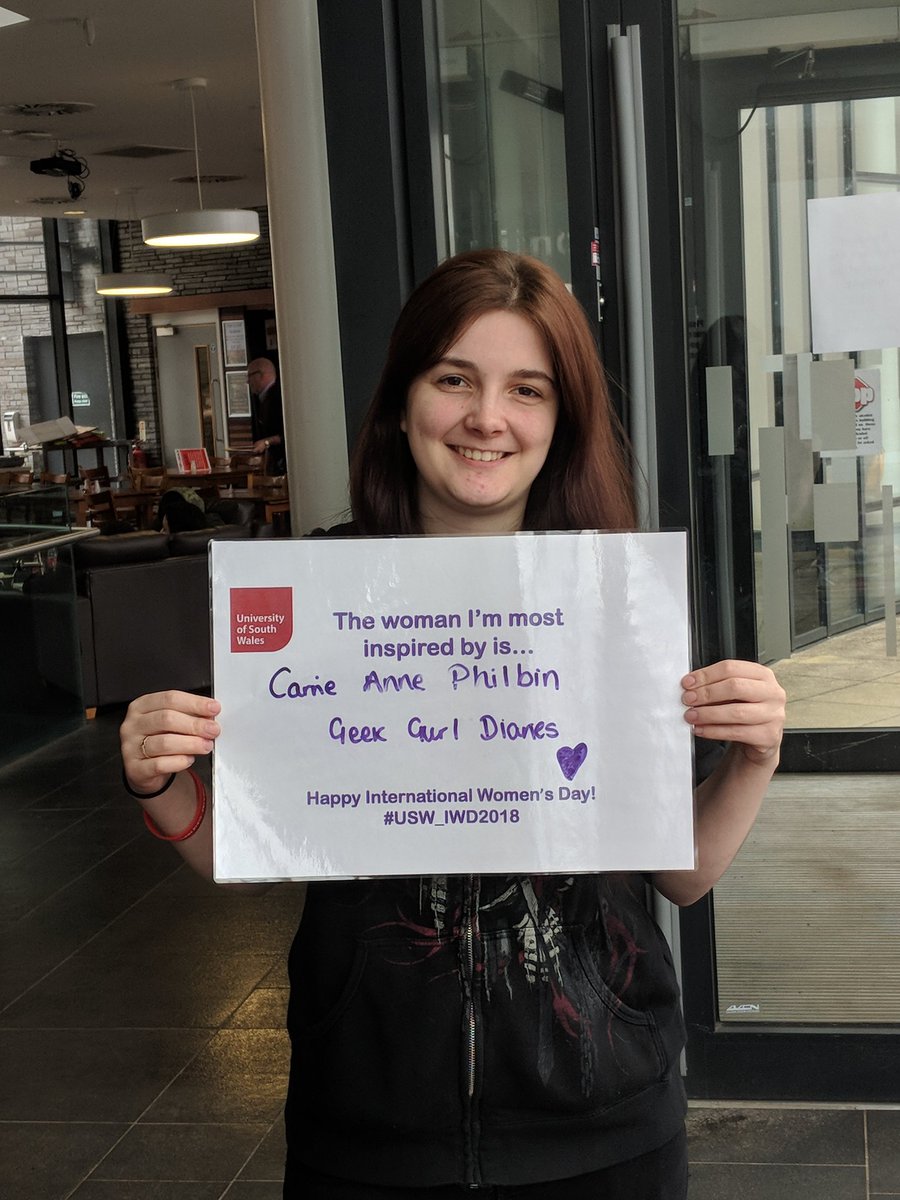 University
of South
Wales
The woman I'm most
inspired by is...
Carrie Anne Philbin
Geek Gurl Diaries
Happy International Women's Day!
#USW_IWD2018